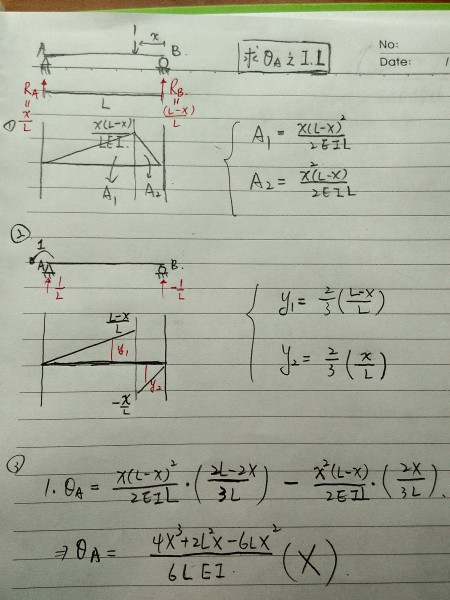 1
x
A
B.
求 θA 之 I.L
No:
Date: /
RA = x/L
L
RB = (L-x)/L
① x(L-x)/LEI
A1 A2
A1 = x(L-x)²/2EIL
A2 = x²(L-x)/2EIL
②
1
A B.
1/L -1/L
L-x/L
y1
y2
-x/L
y1 = 2/3 (L-x/L)
y2 = 2/3 (x/L)
③
1. θA = x(L-x)²/2EIL · (2L-2x/3L) - x²(L-x)/2EIL · (2x/3L).
⇒ θA = 4x³+2L²x-6Lx²/6LEI (X)